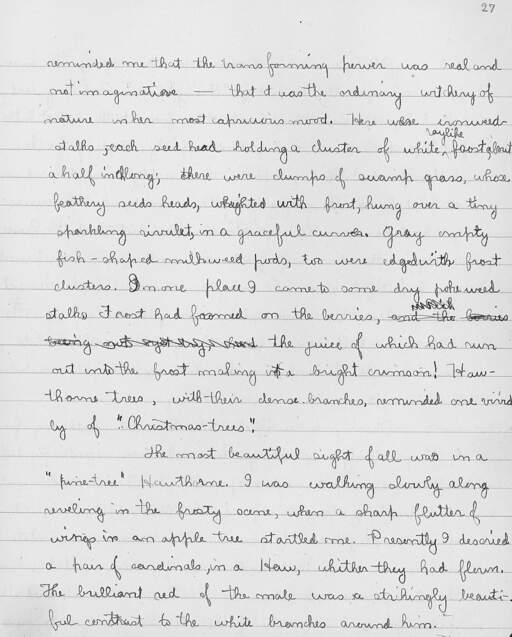 27
reminded me that the transforming power was real and
not imaginative — that it was the ordinary witchery of
nature in her most capricious mood. Here were ironweed
stalks, each seed head holding a cluster of white, raylike frost, about
a half inch long; there were clumps of swamp grass, whose
feathery seeds heads, weighted with frost, hung over a tiny
sparkling rivulet, in a graceful curve. Gray empty
fish-shaped milkweed pods, too were edged with frost
clusters. In one place I came to some dry pokeweed
stalks Frost had formed on the berries, and the berries
being the juice of which had run
out into the frost making it a bright crimson! Haw-
thorne trees, with their dense branches, reminded one vivid
ly of "Christmas-trees"!
The most beautiful sight of all was in a
"pine-tree" Hawthorne. I was walking slowly along
reveling in the frosty scene, when a sharp flutter of
wings in an apple tree startled me. Presently I descried
a pair of cardinals, in a Haw, whither they had flown.
The brilliant red of the male was a strikingly beauti-
ful contrast to the white branches around him.